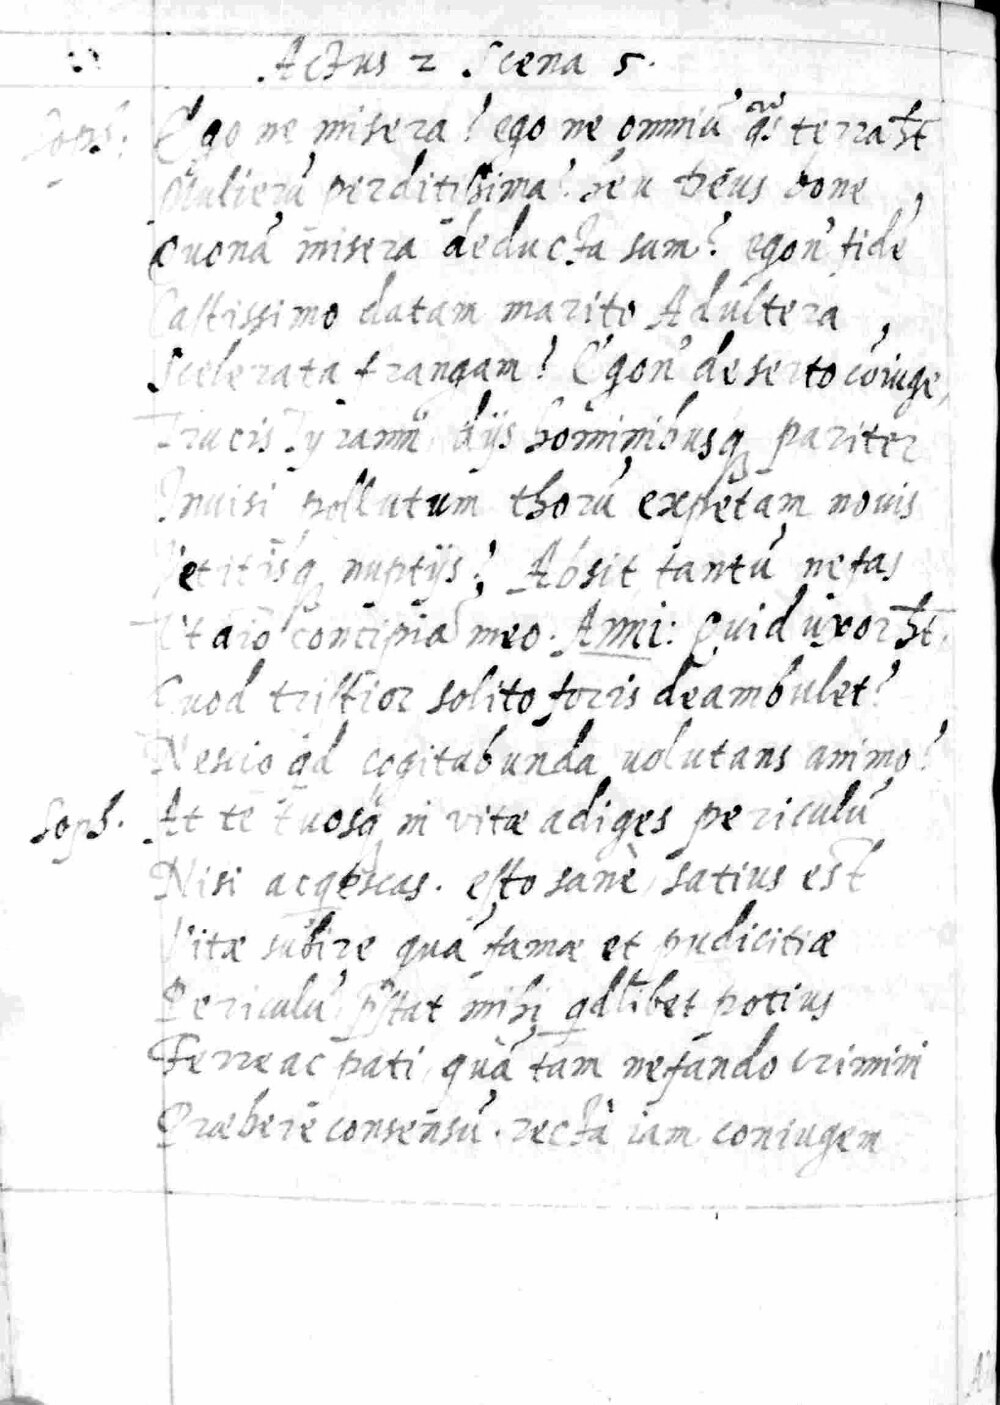 Actus 2 Scena 5.
Soph: Ego ne misera? ego ne omniū q̄s terra h̄t
Mulierū perditissima? heu Deus bone,
Quonā misera deducta sum? egon' fidē
Castissimo datam marito Adultera,
Scelerata frangam? Egon' deserto cōiuge,
Trucis Tyranni, dijs hominibusq; pariter
Inuisi pollutum thorū expetam nouis
Vetitisq; nuptijs? Absit tantū nefas
Vt aīo concipiā meo. Anni: Quid uxor h̄t,
Quod tristior solito foris deambulet?
Nescio qd cogitabunda uolutans animo?
Soph. At te tuosq; in vitæ adiges periculū
Nisi acqescas. esto sanè, satius est
Vitæ subire quā famæ et pudicitiæ
Periculū, p̄stat mihi qdlibet potius
Ferre ac pati, quā tam nefando crimini
Præbere consensū. rectà iam coniugem